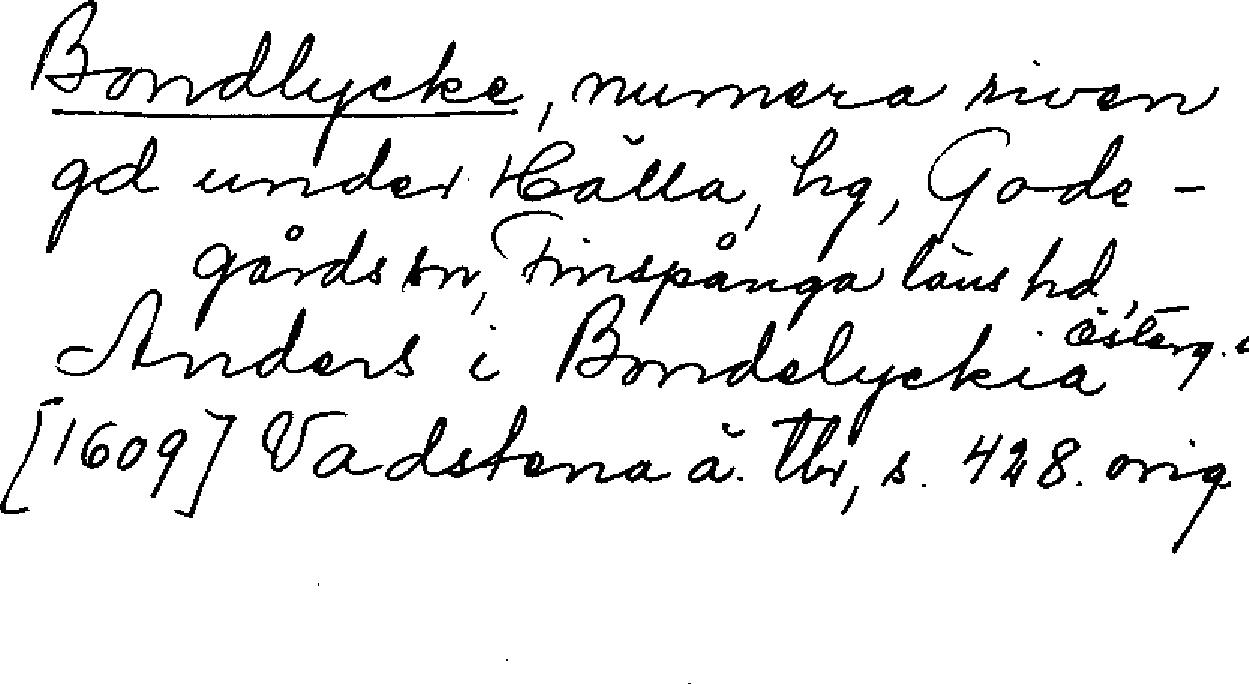 Bondlycke, numera riven
gd under Hälla, hg, Gode-
gårds sn, Finspånga läns hd,
Österg.
Anders i Bondelyckia
[1609] Vadstena ä. tbr, s. 428. orig